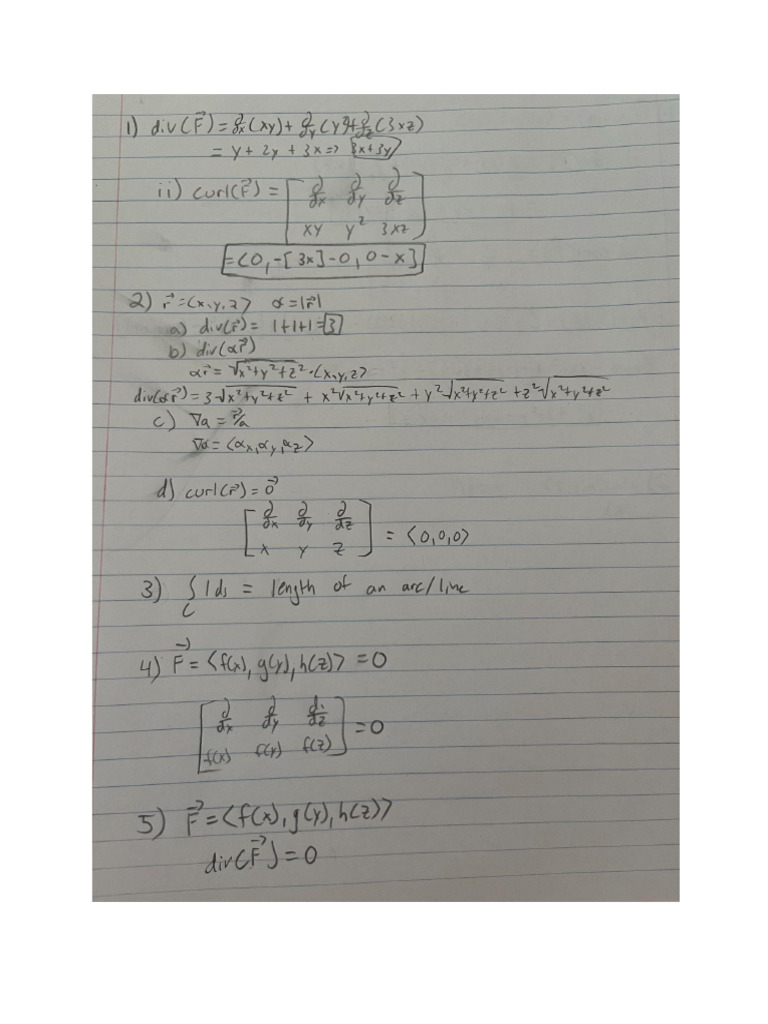 1) div(F⃗) = ∂/∂x (xy) + ∂/∂y (y²) + ∂/∂z (3xz)
= y + 2y + 3x => 3x+3y
ii) curl(F⃗) = [ ∂/∂x ∂/∂y ∂/∂z
xy y² 3xz ]
= <0, -[3x]-0, 0-x]
2) r⃗ = <x,y,z> α = |r⃗|
a) div(r⃗) = 1+1+1 = 3
b) div(αr⃗)
αr⃗ = √x²+y²+z² · <x,y,z>
div(αr⃗) = 3√x²+y²+z² + x²√x²+y²+z² + y²√x²+y²+z² + z²√x²+y²+z²
c) ∇a = r⃗/a
∇α = <αx, αy, αz>
d) curl(r⃗) = 0⃗
[ ∂/∂x ∂/∂y ∂/∂z
x y z ] = <0,0,0>
3) ∫ 1 ds = length of an arc/line
C
4) F⃗ = <f(x), g(y), h(z)> = 0
[ ∂/∂x ∂/∂y ∂/∂z
f(x) f(y) f(z) ] = 0
5) F⃗ = <f(x), g(y), h(z)>
div(F⃗) = 0